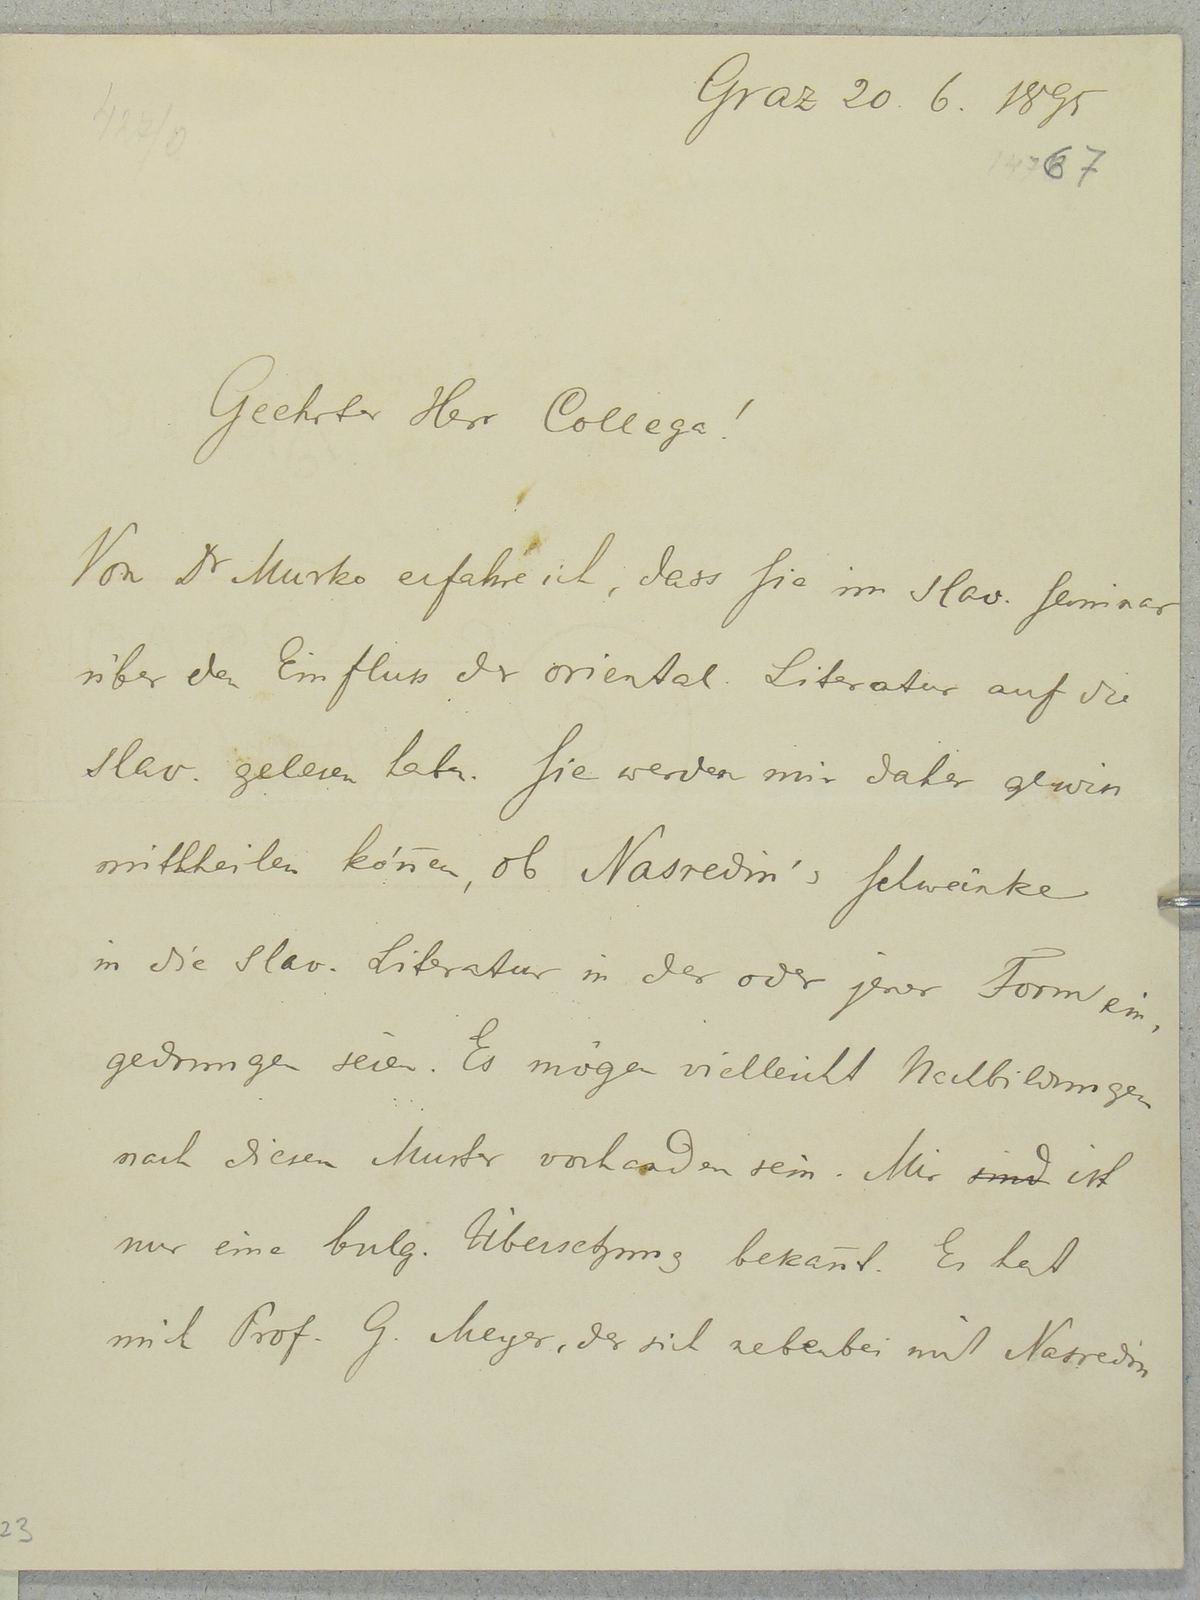 Graz 20. 6. 1895
67
Geehrter Herr Collega!
Von Dr Murko erfahre ich, dass Sie im slav. Seminar
über den Einfluss der oriental. Literatur auf die
slav. gelesen haben. Sie werden mir daher gewiss
mittheilen kön̄en, ob Nasredin's Schwänke
in die slav. Literatur in der oder jener Form ein-
gedrungen seien. Es mögen vielleicht Nachbildungen
nach diesem Muster vorhanden sein. Mir sind ist
nur eine bulg. Übersetzung bekan̄t. Es hat
mich Prof. G. Meyer, der sich nebenbei mit Nasredin
23